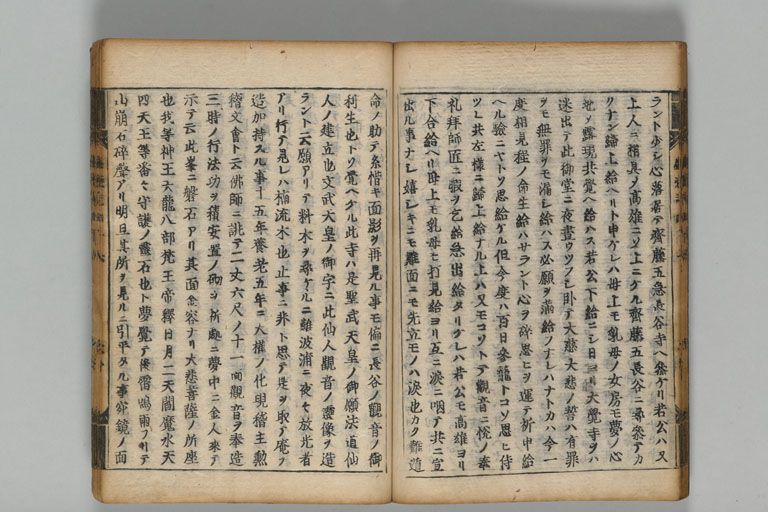 ラント少シ心落居テ齋藤五急長谷寺ヘ參ケリ若公ハ又
上人ニ相具〆高雄ニソ上ニケル齋藤五長谷ニ尋參テカ
クナン歸上給ヘリト申ケレハ母上モ乳母ノ女房モ夢ノ心
地ソ露現共覺ヘ給ハス若公下給ニシ日ヨリ大覺寺ヲハ
迷出テ此御堂ニ夜晝ウツフシ臥テ大慈大悲ノ誓ハ有罪
ヲモ無罪ヲモ漏シ給ハス必願ヲ滿給フナレハナトカハ今一
度相見程ノ命生給ハサラント心ヲ碎思ヒヲ運テ祈申給
ヘル驗ニヤトソ思給ケル但今度ハ百日參籠トコソ思ヒ侍
ツレ共左樣ニ歸上給ナル上ハ又モコソトテ觀音ニ悅ノ奉
礼拜師匠ニ暇ヲ乞給急出給タリケレハ若公モ高雄ヨリ
下合給ヘリ母上モ乳母モ打見給ヨリ互ニ淚ニ咽テ共ニ宣
出ル事ナシ嬉シキニモ難面ニモ先立モノハ淚也カク難遁
命ノ助テ糸惜キ面影ヲ再見ル事モ偏ニ長谷ノ觀音ノ御
利生也トソ覺ケル此寺ハ是聖武天皇ノ御願法道仙
人ノ建立也文武天皇ノ御宇ニ此仙人觀音ノ靈像ヲ造
ラント云願アリテ料木ヲ尋ケルニ難波浦ニ夜々放光者
アリ行テ見レハ楠流木也止事ニ非ト思テ是ヲ取テ庵ヲ
造加持スル事十五年養老五年ニ大權ノ化現稽主勲
稽文會ト云佛師ニ誂テ二丈六尺ノ十一面觀音ヲ奉造
三時ノ行法功ヲ積安置ノ砌ヲ祈處ニ夢中ニ金人來テ
示テ云此峯ニ磐石アリ其面金谷ナリ大悲菩薩ノ所座
也我等神王天龍八部梵王帝釋日月二天閻魔水天
四天王等番々守護ノ靈石也ト夢覺テ後雷鳴雨フリテ
山崩石碎聲アリ明旦其所ヲ見ルニ引平タル事宛鏡ノ面